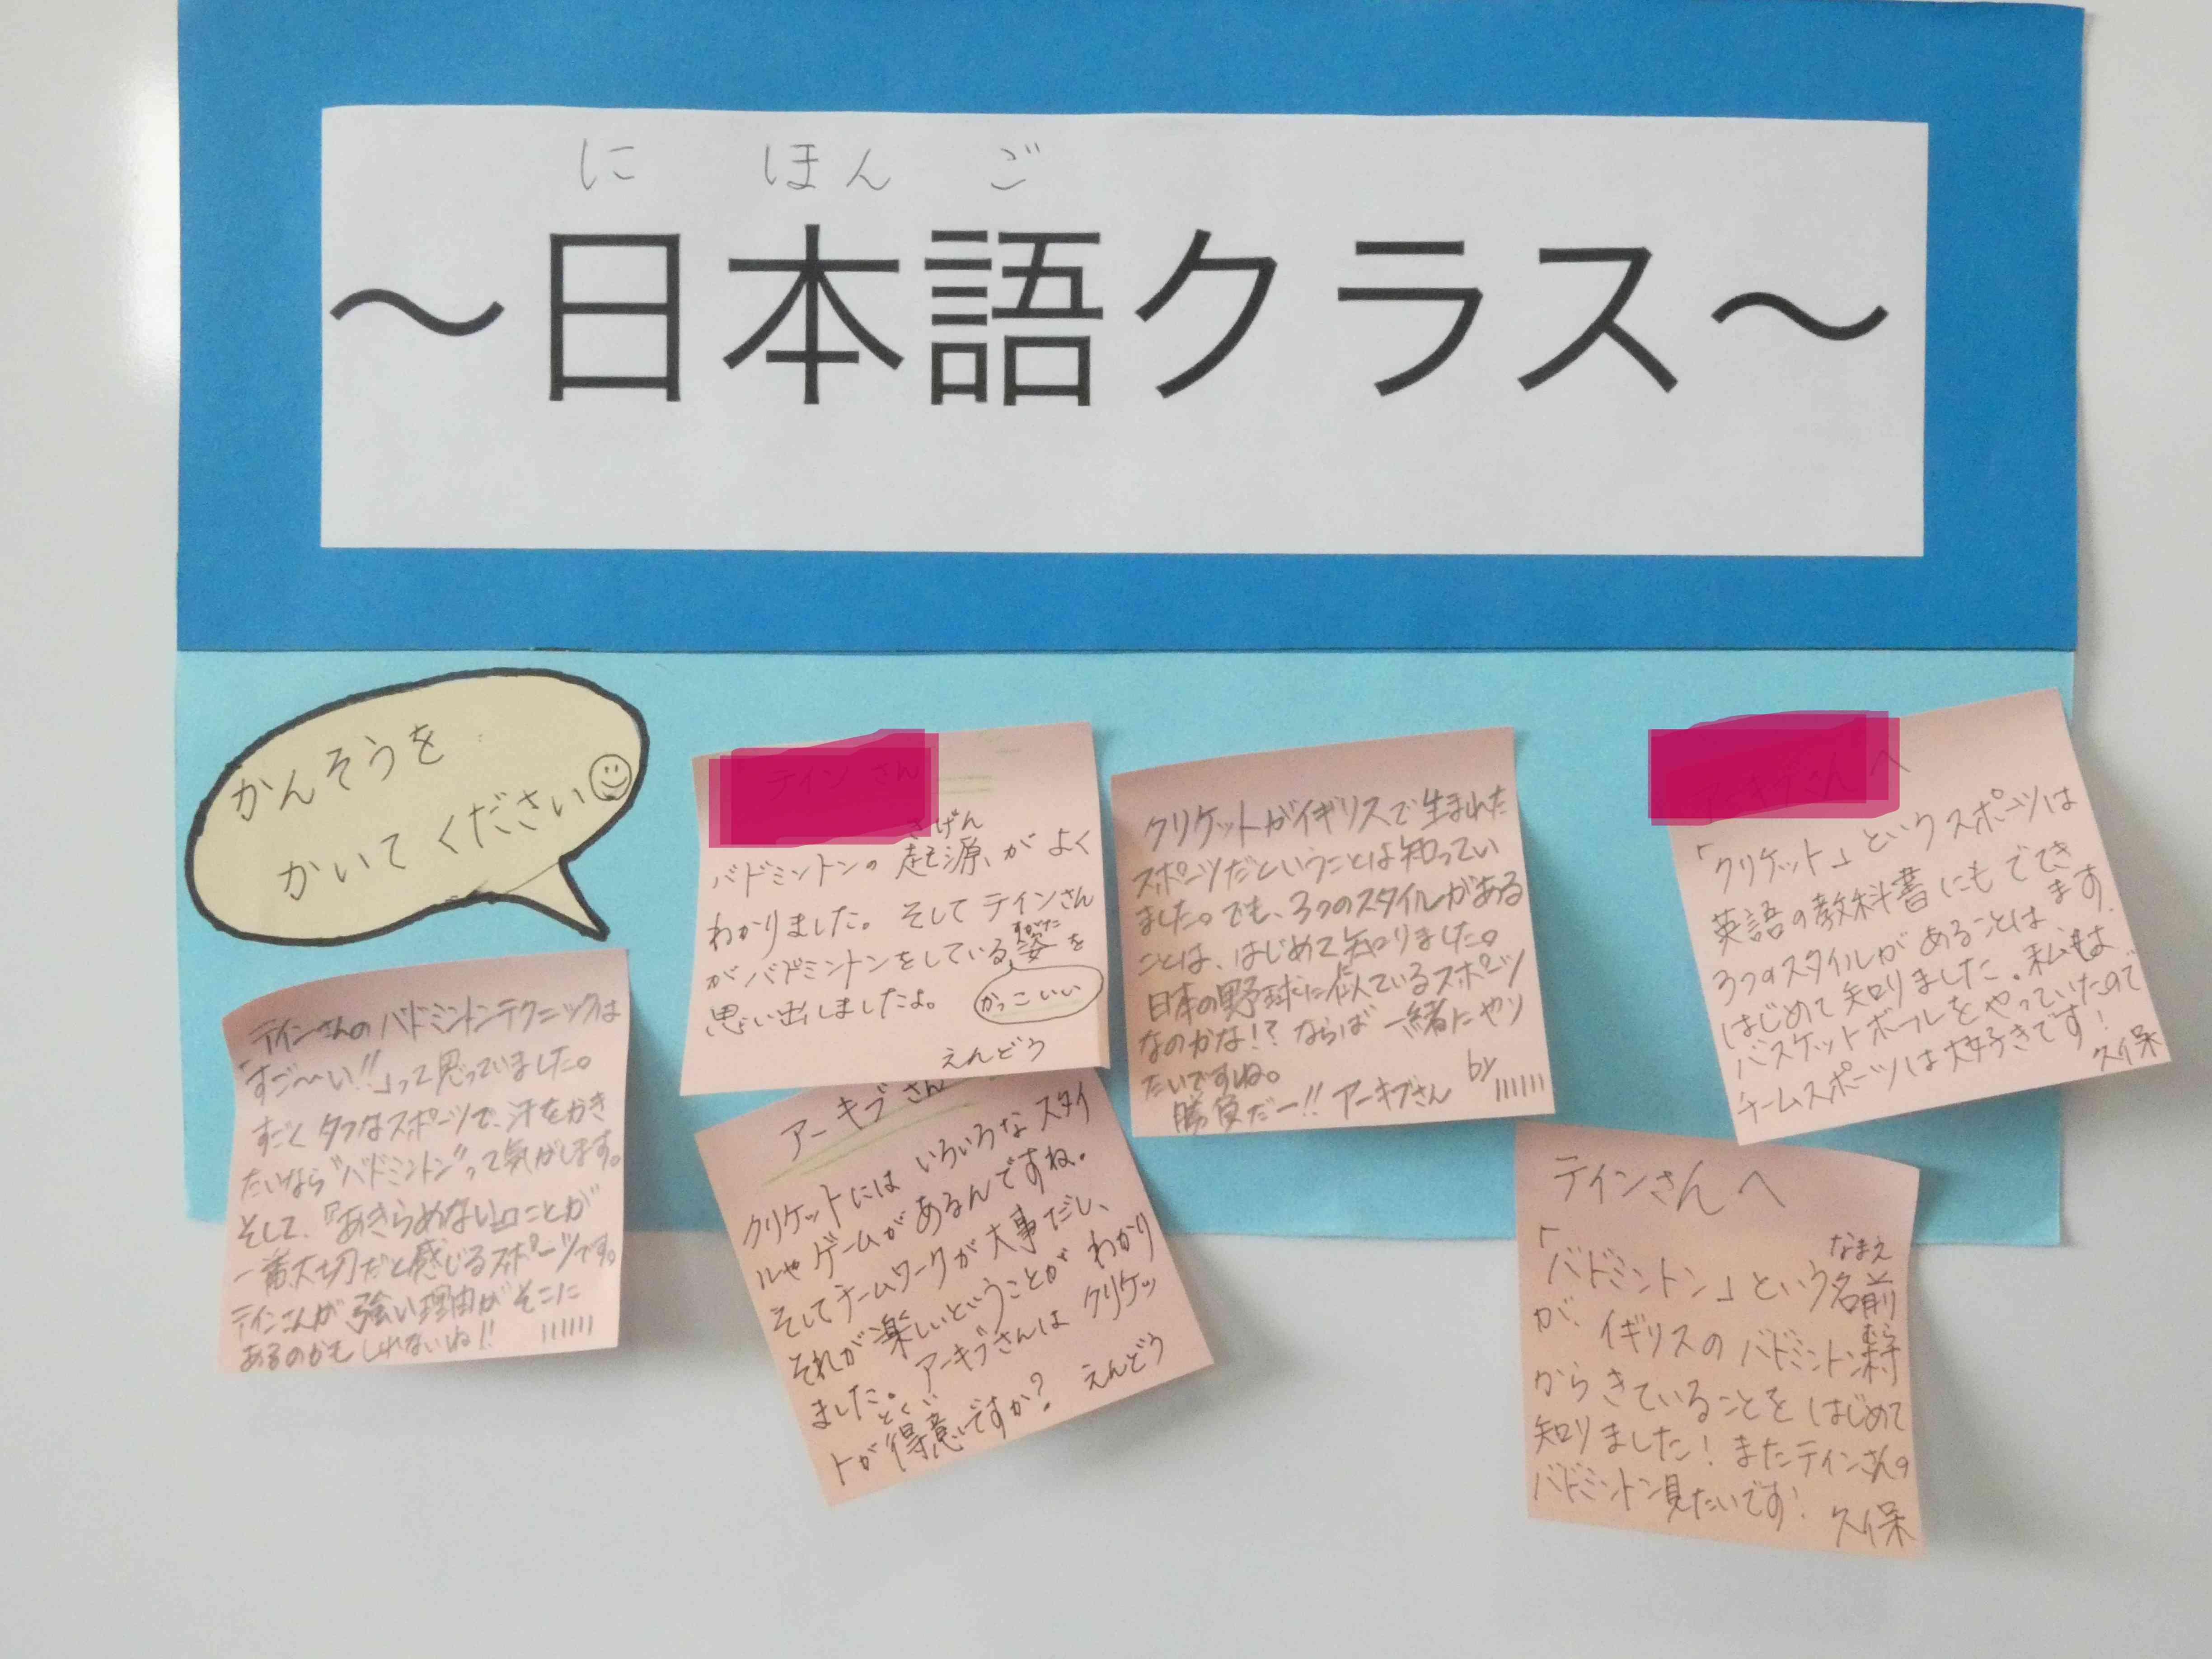 に ほん ご
～日本語クラス～
かんそうを
かいてください
テインさん
きげん
バドミントンの起源がよく
わかりました。そしてテインさん
すがた
がバドミントンをしている姿を
思い出しましたよ。
かっこいい
えんどう
クリケットがイギリスで生まれた
スポーツだということは知ってい
ました。でも、3つのスタイルがある
ことは、はじめて知りました。
に
日本の野球に似ているスポーツ
なのかな!? ならば一緒にやり
たいですね。
勝負だー!! アーキブさん by
アーキブさんへ
「クリケット」というスポーツは
英語の教科書にもでてき
ます。
3つのスタイルがあることは
はじめて知りました。私は
バスケットボールをやっていたので
チームスポーツは大好きです!
久保
テインさんのバドミントンテクニックは
「すご～い!!」って思っていました。
すごくタフなスポーツで、汗をかき
たいなら"バドミントン"って気がします。
そして、『あきらめない』ことが
一番大切だと感じるスポーツです。
テインさんが強い理由がそこに
あるのかもしれないね!!
アーキブさん
クリケットにはいろいろなスタイ
ルやゲームがあるんですね。
そしてチームワークが大事だし、
それが楽しいということがわかり
ました。アーキブさんはクリケッ
とくい
トが得意ですか?
えんどう
テインさんへ
なまえ
「バドミントン」という名前
むら
が、イギリスのバドミントン村
からきていることをはじめて
知りました! またテインさんの
バドミントン見たいです!
久保